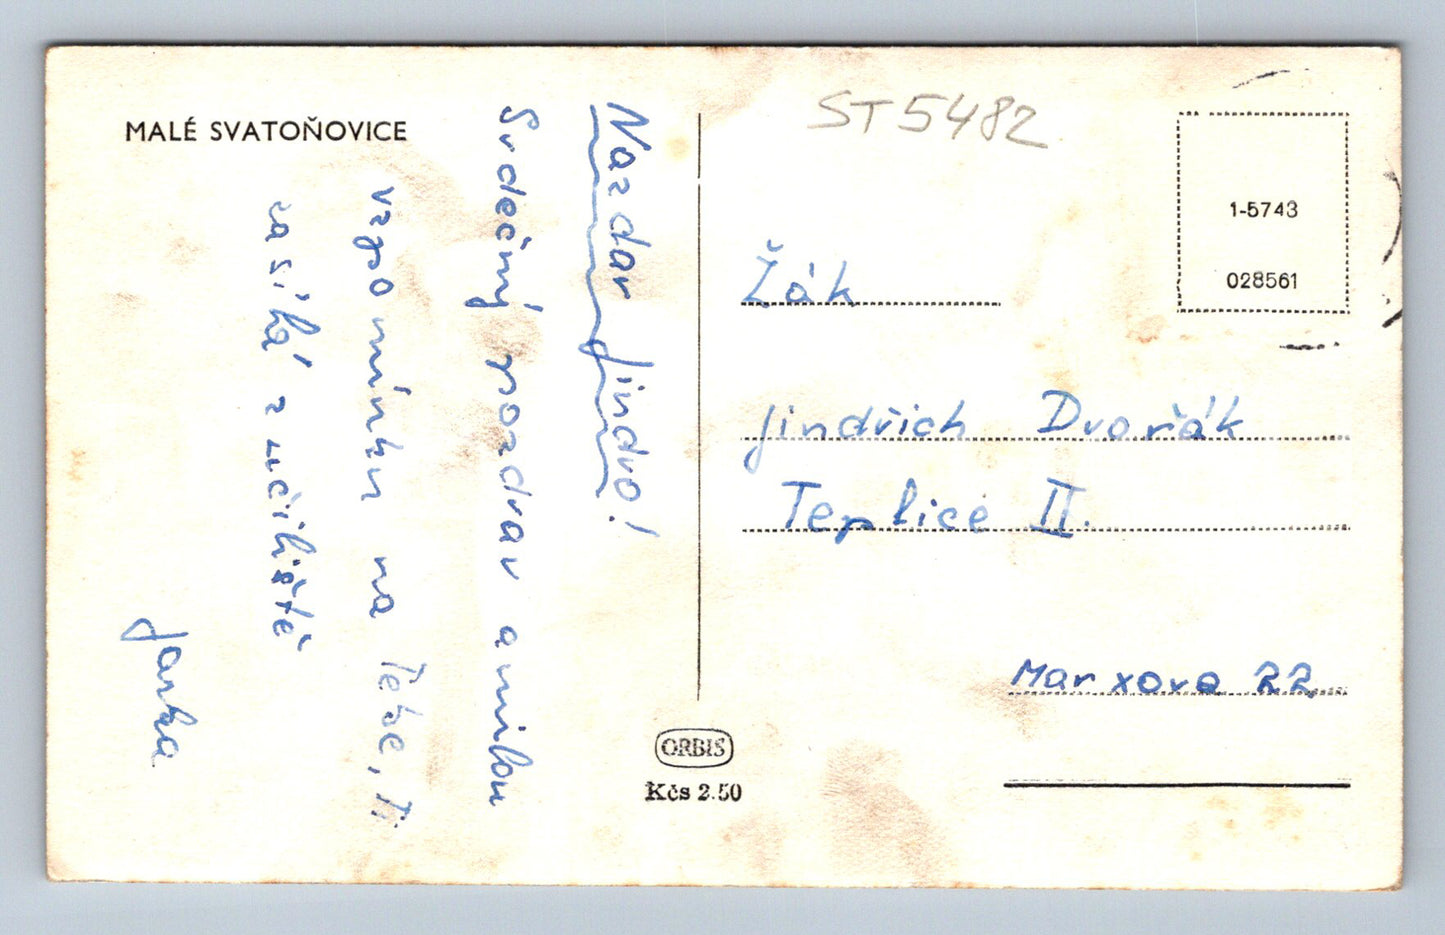 MALÉ SVATOŇOVICE
Nazdar Jindro!
Srdečný pozdrav a milou
vzpomínku na Tebe, Ti
zasílá z učiliště
Jarka
ST5482
1-5743
028561
Žák
Jindřich Dvořák
Teplice II.
Marxova 22
ORBIS
Kčs 2.50